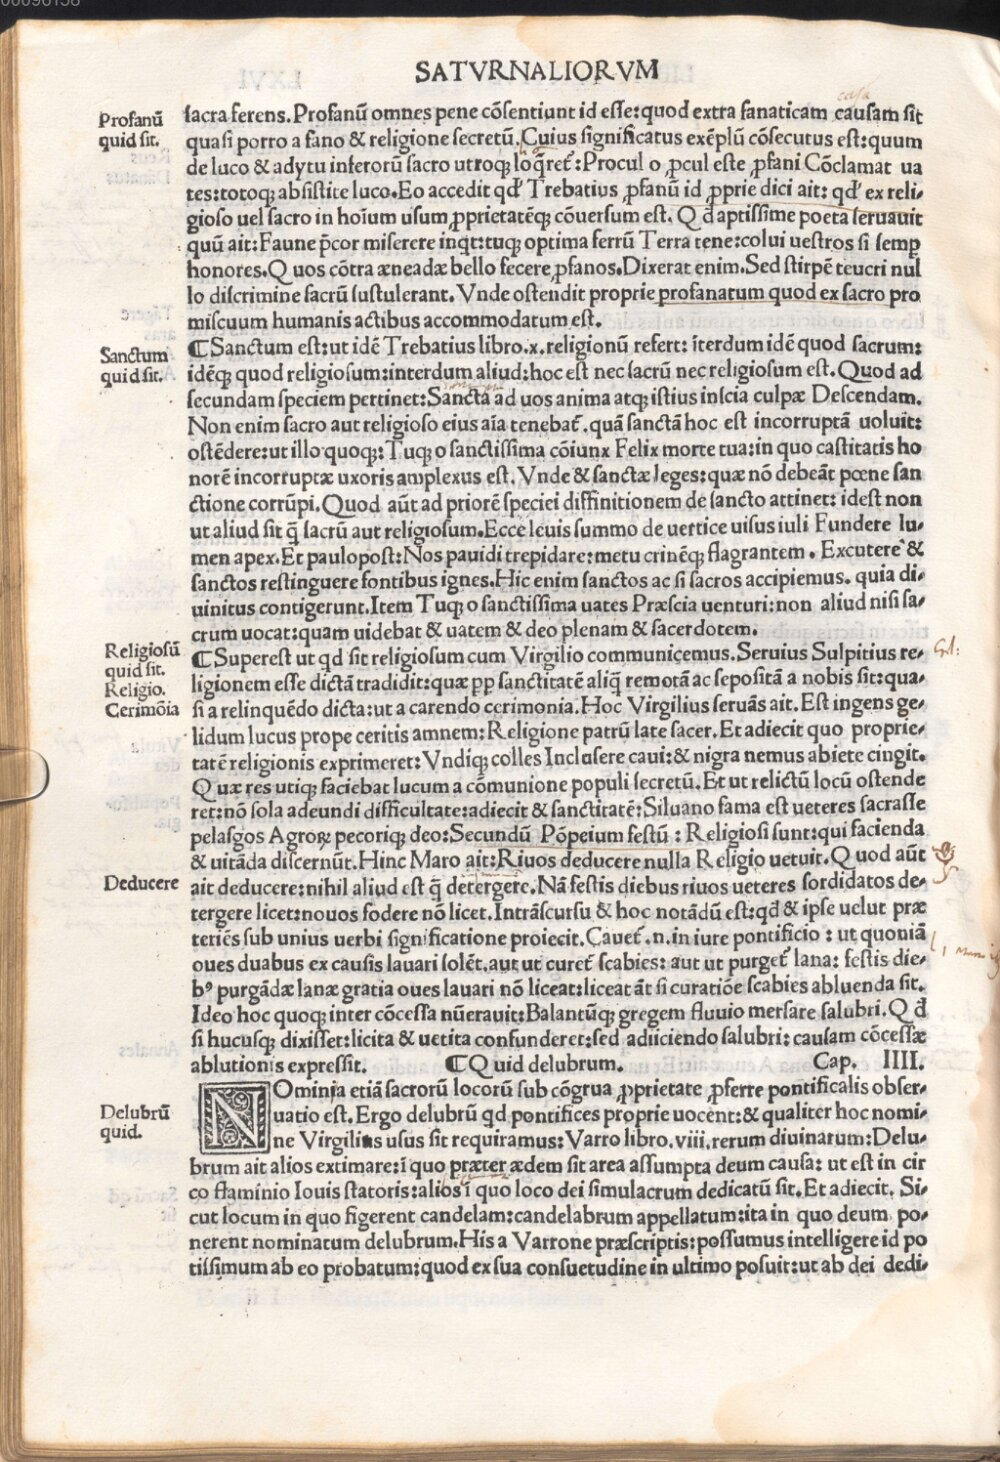 SATVRNALIORVM
Profanū
quid sit.
sacra ferens. Profanū omnes pene cōsentiunt id esse: quod extra fanaticam causam sit
quasi porro a fano & religione secretū. Cuius significatus exēplū cōsecutus est: quum
de luco & adytu inferorū sacro utroqꝫ loq̄ret᷑: Procul o ꝓcul este ꝓfani Cōclamat ua
tes: totoqꝫ absistite luco. Eo accedit qđ Trebatius ꝓfanū id ꝓprie dici ait: qđ ex reli-
gioso uel sacro in hoīum usum ꝓprietatēqꝫ cōuersum est. Q đ aptissime poeta seruauit
quū ait: Faune p̄cor miserere inq̇t: tuqꝫ optima ferrū Terra tene: colui uestros si semꝑ
honores. Q uos cōtra æneadæ bello fecere ꝓfanos. Dixerat enim. Sed stirpē teucri nul
lo discrimine sacrū sustulerant. Vnde ostendit proprie profanatum quod ex sacro pro
miscuum humanis actibus accommodatum est.
Sanctum
quid sit.
¶Sanctum est: ut idē Trebatius libro. x. religionū refert: īterdum idē quod sacrum:
idēqꝫ quod religiosum: interdum aliud: hoc est nec sacrū nec religiosum est. Quod ad
secundam speciem pertinet: Sancta ad uos anima atqꝫ istius inscia culpæ Descendam.
Non enim sacro aut religioso eius aīa tenebat᷑. quā sanctā hoc est incorruptā uoluit:
ostēdere: ut illo quoqꝫ: Tuqꝫ o sanctissima cōiunx Felix morte tua: in quo castitatis ho
norē incorruptæ uxoris amplexus est. Vnde & sanctæ leges: quæ nō debeāt pœne san
ctione corrūpi. Quod aūt ad priorē speciei diffinitionem de sancto attinet: idest non
ut aliud sit q̄ sacrū aut religiosum. Ecce leuis summo de uertice uisus iuli Fundere lu-
men apex. Et paulopost: Nos pauidi trepidare: metu crinēqꝫ flagrantem. Excutere &
sanctos restinguere fontibus ignes. Hic enim sanctos ac si sacros accipiemus. quia di-
uinitus contigerunt. Item Tuqꝫ o sanctissima uates Præscia uenturi: non aliud nisi sa-
crum uocat: quam uidebat & uatem & deo plenam & sacerdotem.
Religiosū
quid sit.
Religio.
Cerimōia
¶Superest ut qđ sit religiosum cum Virgilio communicemus. Seruius Sulpitius re-
ligionem esse dictā tradidit: quæ ꝓp sanctitatē aliq̄ remotā ac sepositā a nobis sit: qua-
si a relinquēdo dicta: ut a carendo cerimonia. Hoc Virgilius seruās ait. Est ingens ge-
lidum lucus prope ceritis amnem: Religione patrū late sacer. Et adiecit quo proprie-
tatē religionis exprimeret: Vndiqꝫ colles Inclusere caui: & nigra nemus abiete cingit.
Q uæ res utiqꝫ faciebat lucum a cōmunione populi secretū. Et ut relictū locū ostende
ret: nō sola adeundi difficultate: adiecit & sanctitatē: Siluano fama est ueteres sacrasse
pelasgos Agroꝝ pecoriqꝫ deo: Secundū Pōpeium festū: Religiosi sunt: qui facienda
& uitāda discernūt. Hinc Maro ait: Riuos deducere nulla Religio uetuit. Q uod aūt
Deducere
ait deducere: nihil aliud est q̄ detergere. Nā festis diebus riuos ueteres sordidatos de-
tergere licet: nouos fodere nō licet. Intrāscursu & hoc notādū est: qđ & ipse uelut præ
teriēs sub unius uerbi significatione proiecit. Cauet᷑. n. in iure pontificio: ut quoniā
oues duabus ex causis lauari solēt. aut ut curet᷑ scabies: aut ut purget᷑ lana: festis die-
bꝰ purgādæ lanæ gratia oues lauari nō liceat: liceat āt si curatiōe scabies abluenda sit.
Ideo hoc quoqꝫ inter cōcessa nūerauit: Balantūqꝫ gregem fluuio mersare salubri. Q đ
si hucusqꝫ dixisset: licita & uetita confunderet: sed adiiciendo salubri: causam cōcessæ
ablutionis expressit. ¶Q uid delubrum. Cap. IIII.
Delubrū
quid.
NOminia etiā sacrorū locorū sub cōgrua ꝓprietate ꝓferre pontificalis obser-
uatio est. Ergo delubrū qđ pontifices proprie uocent: & qualiter hoc nomi-
ne Virgilius usus sit requiramus: Varro libro. viii. rerum diuinatum: Delu-
brum ait alios extimare: ī quo præter ædem sit area assumpta deum causa: ut est in cir
co flaminio Iouis statoris: alios ī quo loco dei simulacrum dedicatū sit. Et adiecit. Si-
cut locum in quo figerent candelam: candelabrum appellatum: ita in quo deum po-
nerent nominatum delubrum. His a Varrone præscriptis: possumus intelligere id po
tissimum ab eo probatum: quod ex sua consuetudine in ultimo posuit: ut ab dei dedi-